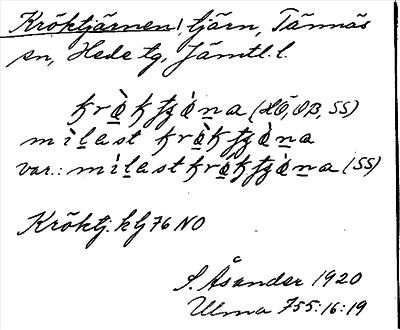 Kröktjärnen, tjärn, Tännäs
sn, Hede tg, Jämtl. l.
krø̀kʃæ̀na (HÖ, OB, SS)
mìlast krø̀kʃæ̀na
var.: mìlastkrø̀kʃæ̀na (SS)
Kröktj. kbl 76 NO
S. Åsander 1920
Ulma 755:16:19